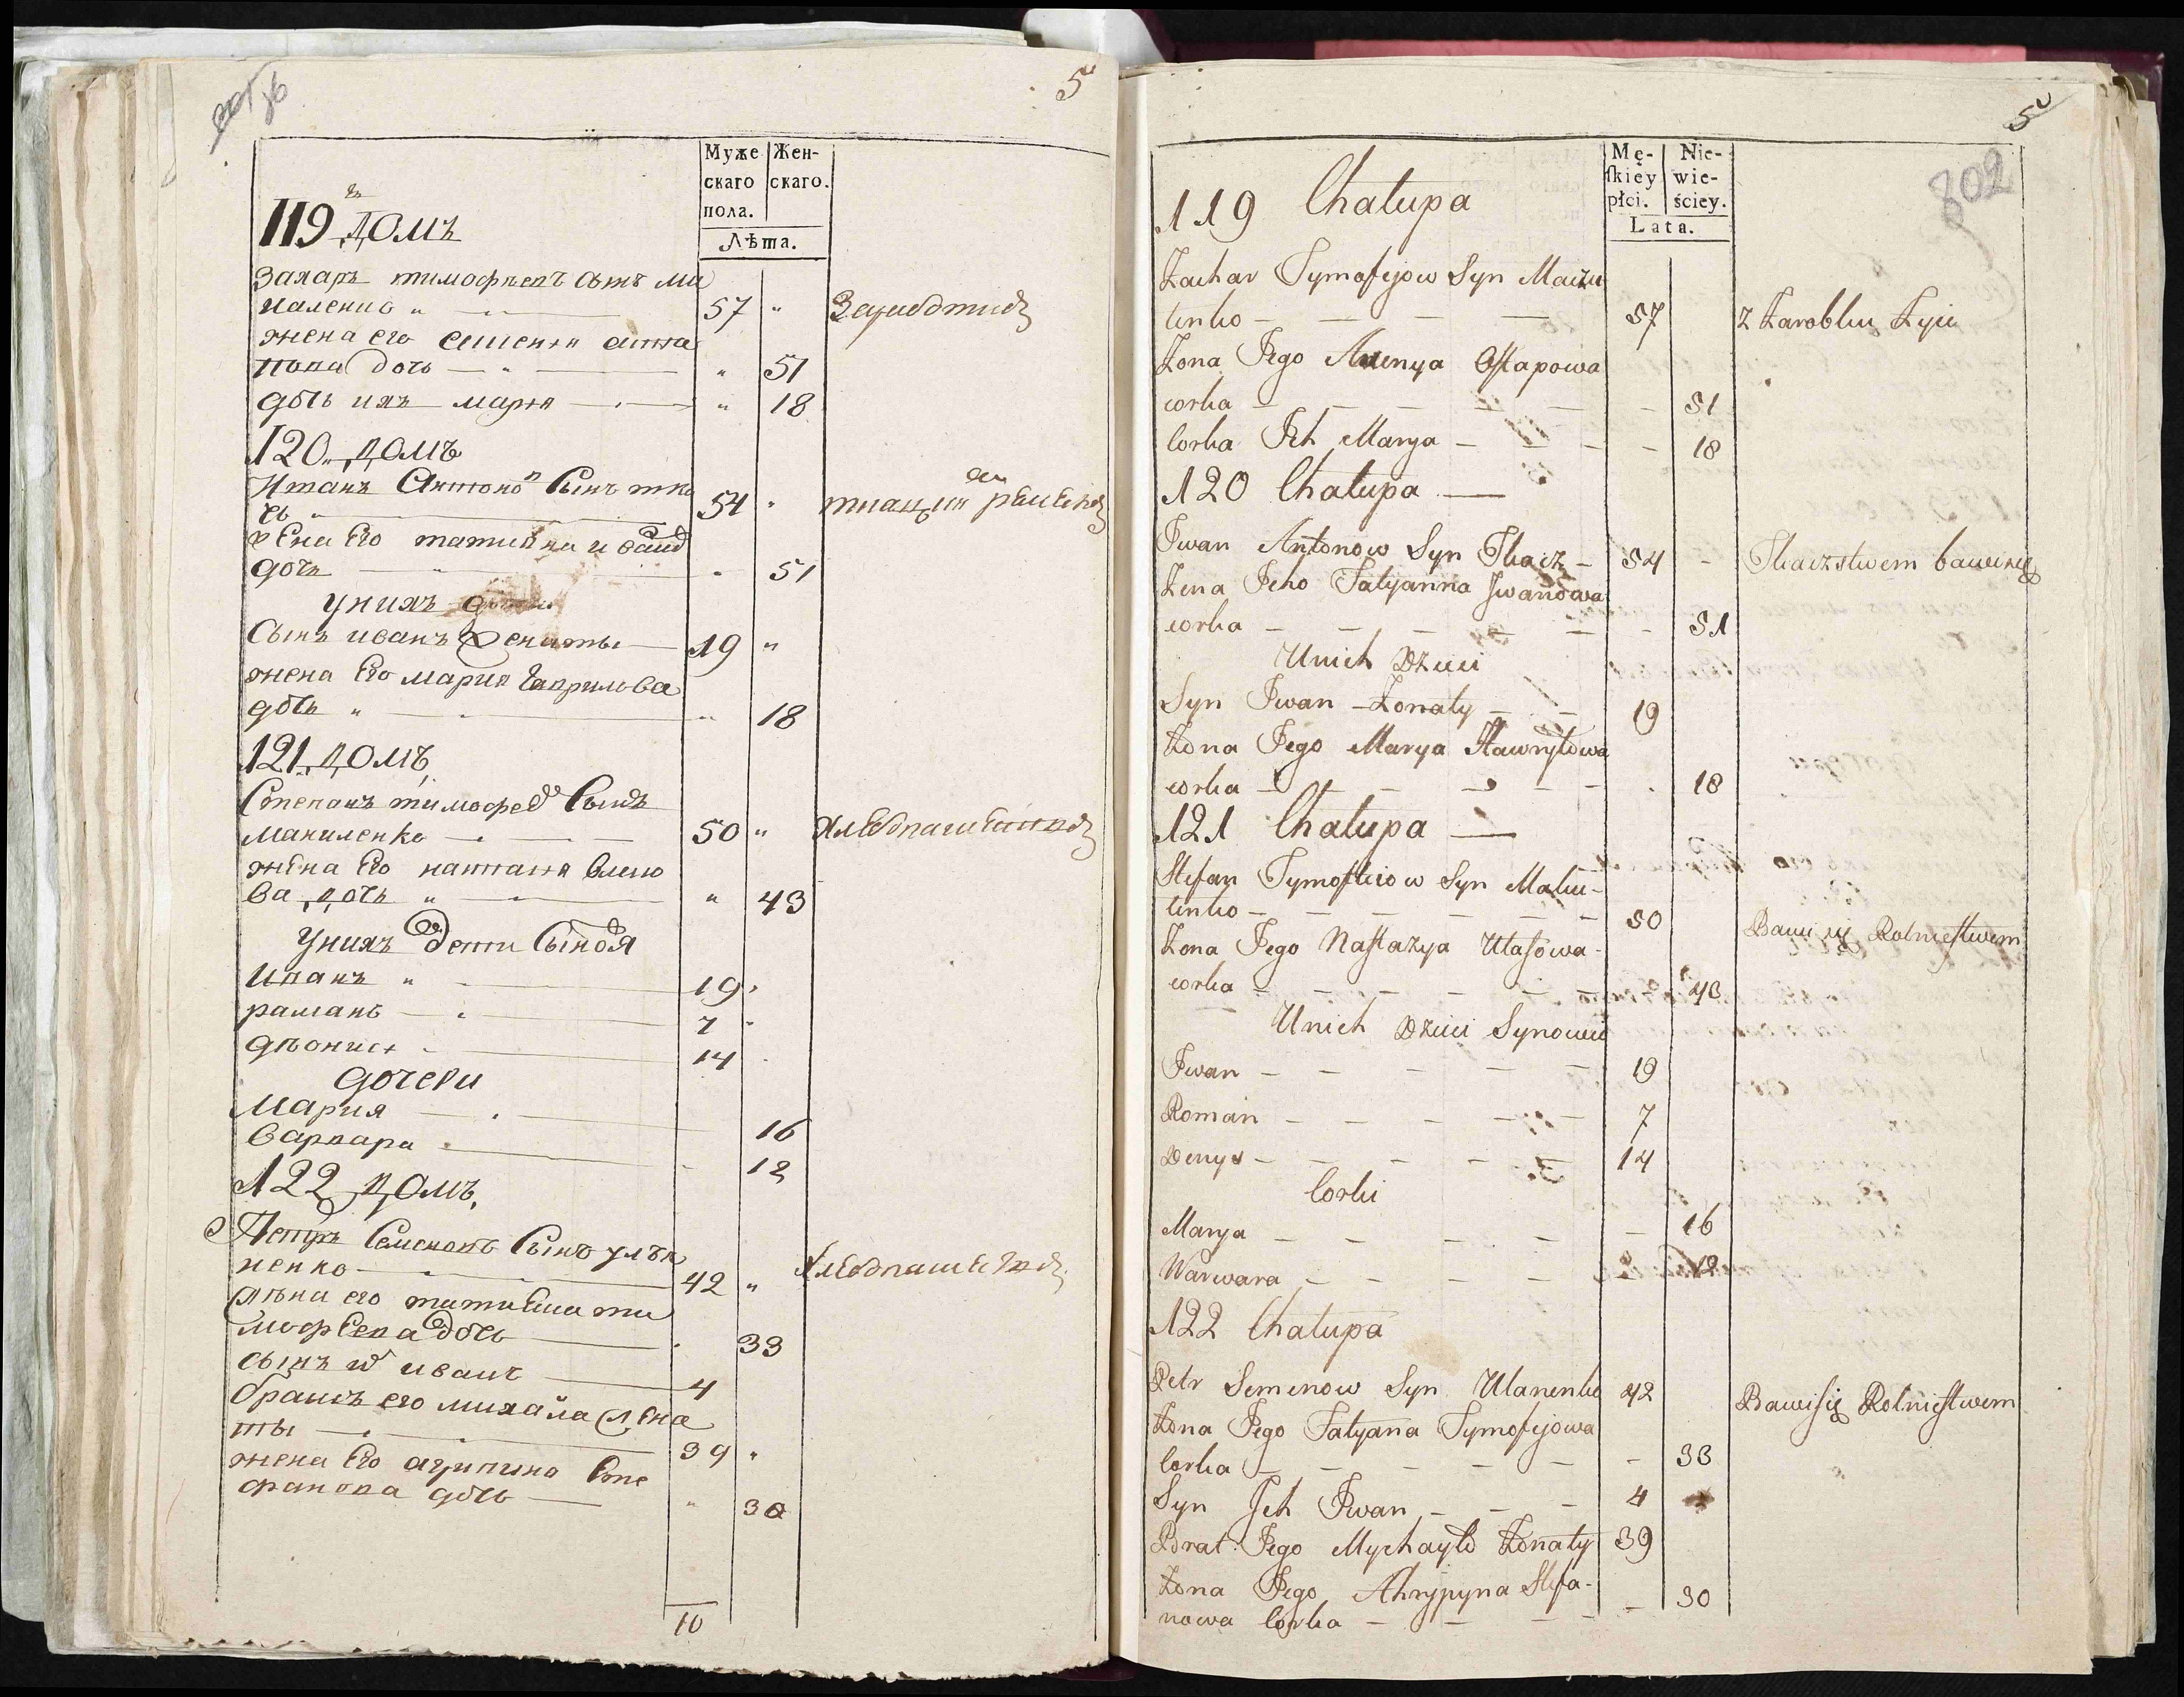 5
Муже
скаго
пола.
Жен-
скаго.
Лѣта.
119 домъ
Захаръ тимофѣевъ сынъ ма
57 "
жена его
дочь — " — " 51
дочь ихъ мария — " 18
120 домъ
Иванъ Антоновъ Сынъ тка
чь " 54 "
жена Его татияна ивано
дочь — " 51
унихъ дети
Сынъ иванъ женаты — 19 "
жена Его мария Гаврилова
дочь " — " 18
121 домъ
Степанъ тимофеевъ Сынъ
Макиленко — 50 " хлебопашествомъ
жена Его настасия власо
ва дочь " — " 43
унихъ дети Сыновя
Иванъ " — 19 "
романъ — 7 "
дѣонис — 14
дочери
Мария — 16
варвара — 12
122 домъ
Петръ Семеновъ Сынъ улья
ненко — 42 " хлебопашествомъ
жена его татияна ти
мофеева дочь — 33
сынъ иванъ — 4
братъ его михайла жена
ты — 39 "
жена Его агрипина Сте
фанова дочь — " 30
10
5
802
Mę-
skiey
płci.
Nie-
wie-
ściey.
Lata.
119 Chałupa
Zachar Tymofijow Syn Maciu
lenko — 57 z Zarobku Żyie
Żona Jego Ostapowa
corka — 51
Corka Ich Marya — 18
120 Chałupa —
Iwan Antonow Syn Tkacz — 54 - Tkaczstwem bawi się
Żena Jeho Tatyanna Iwanowa
corka — 51
Unich Dzieci
Syn Iwan — Żonaty — 19
Żona Jego Marya Hawryłowa
corka — 18
121 Chałupa —
Stefan Tymofieiow Syn Makie-
lenko — 50 Bawi się Rolnictwem
Żona Jego Nastazya Własowa-
corka — 43
Unich Dzieci Synowie
Iwan — 19
Roman — 7
Denys — 14
Corki
Marya — 16
Warwara — 12
122 Chałupa
Petr Semenow Syn Ulanenko 42 Bawi się Rolnictwem
Żona Jego Tatyana Tymofijowa
Corka — 33
Syn Ich Iwan — 4
Brat Jego Mychayło Żonaty 39
Żona Jego Ahrypyna Stefa-
nowa Corka — 30